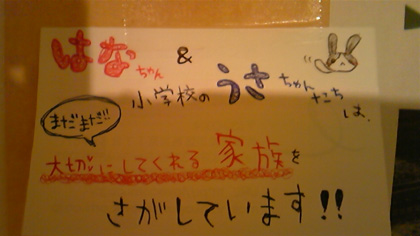 はなちゃん &
小学校の うさちゃんたちは、
まだまだ!!
大切にしてくれる 家族を
さがしています!!